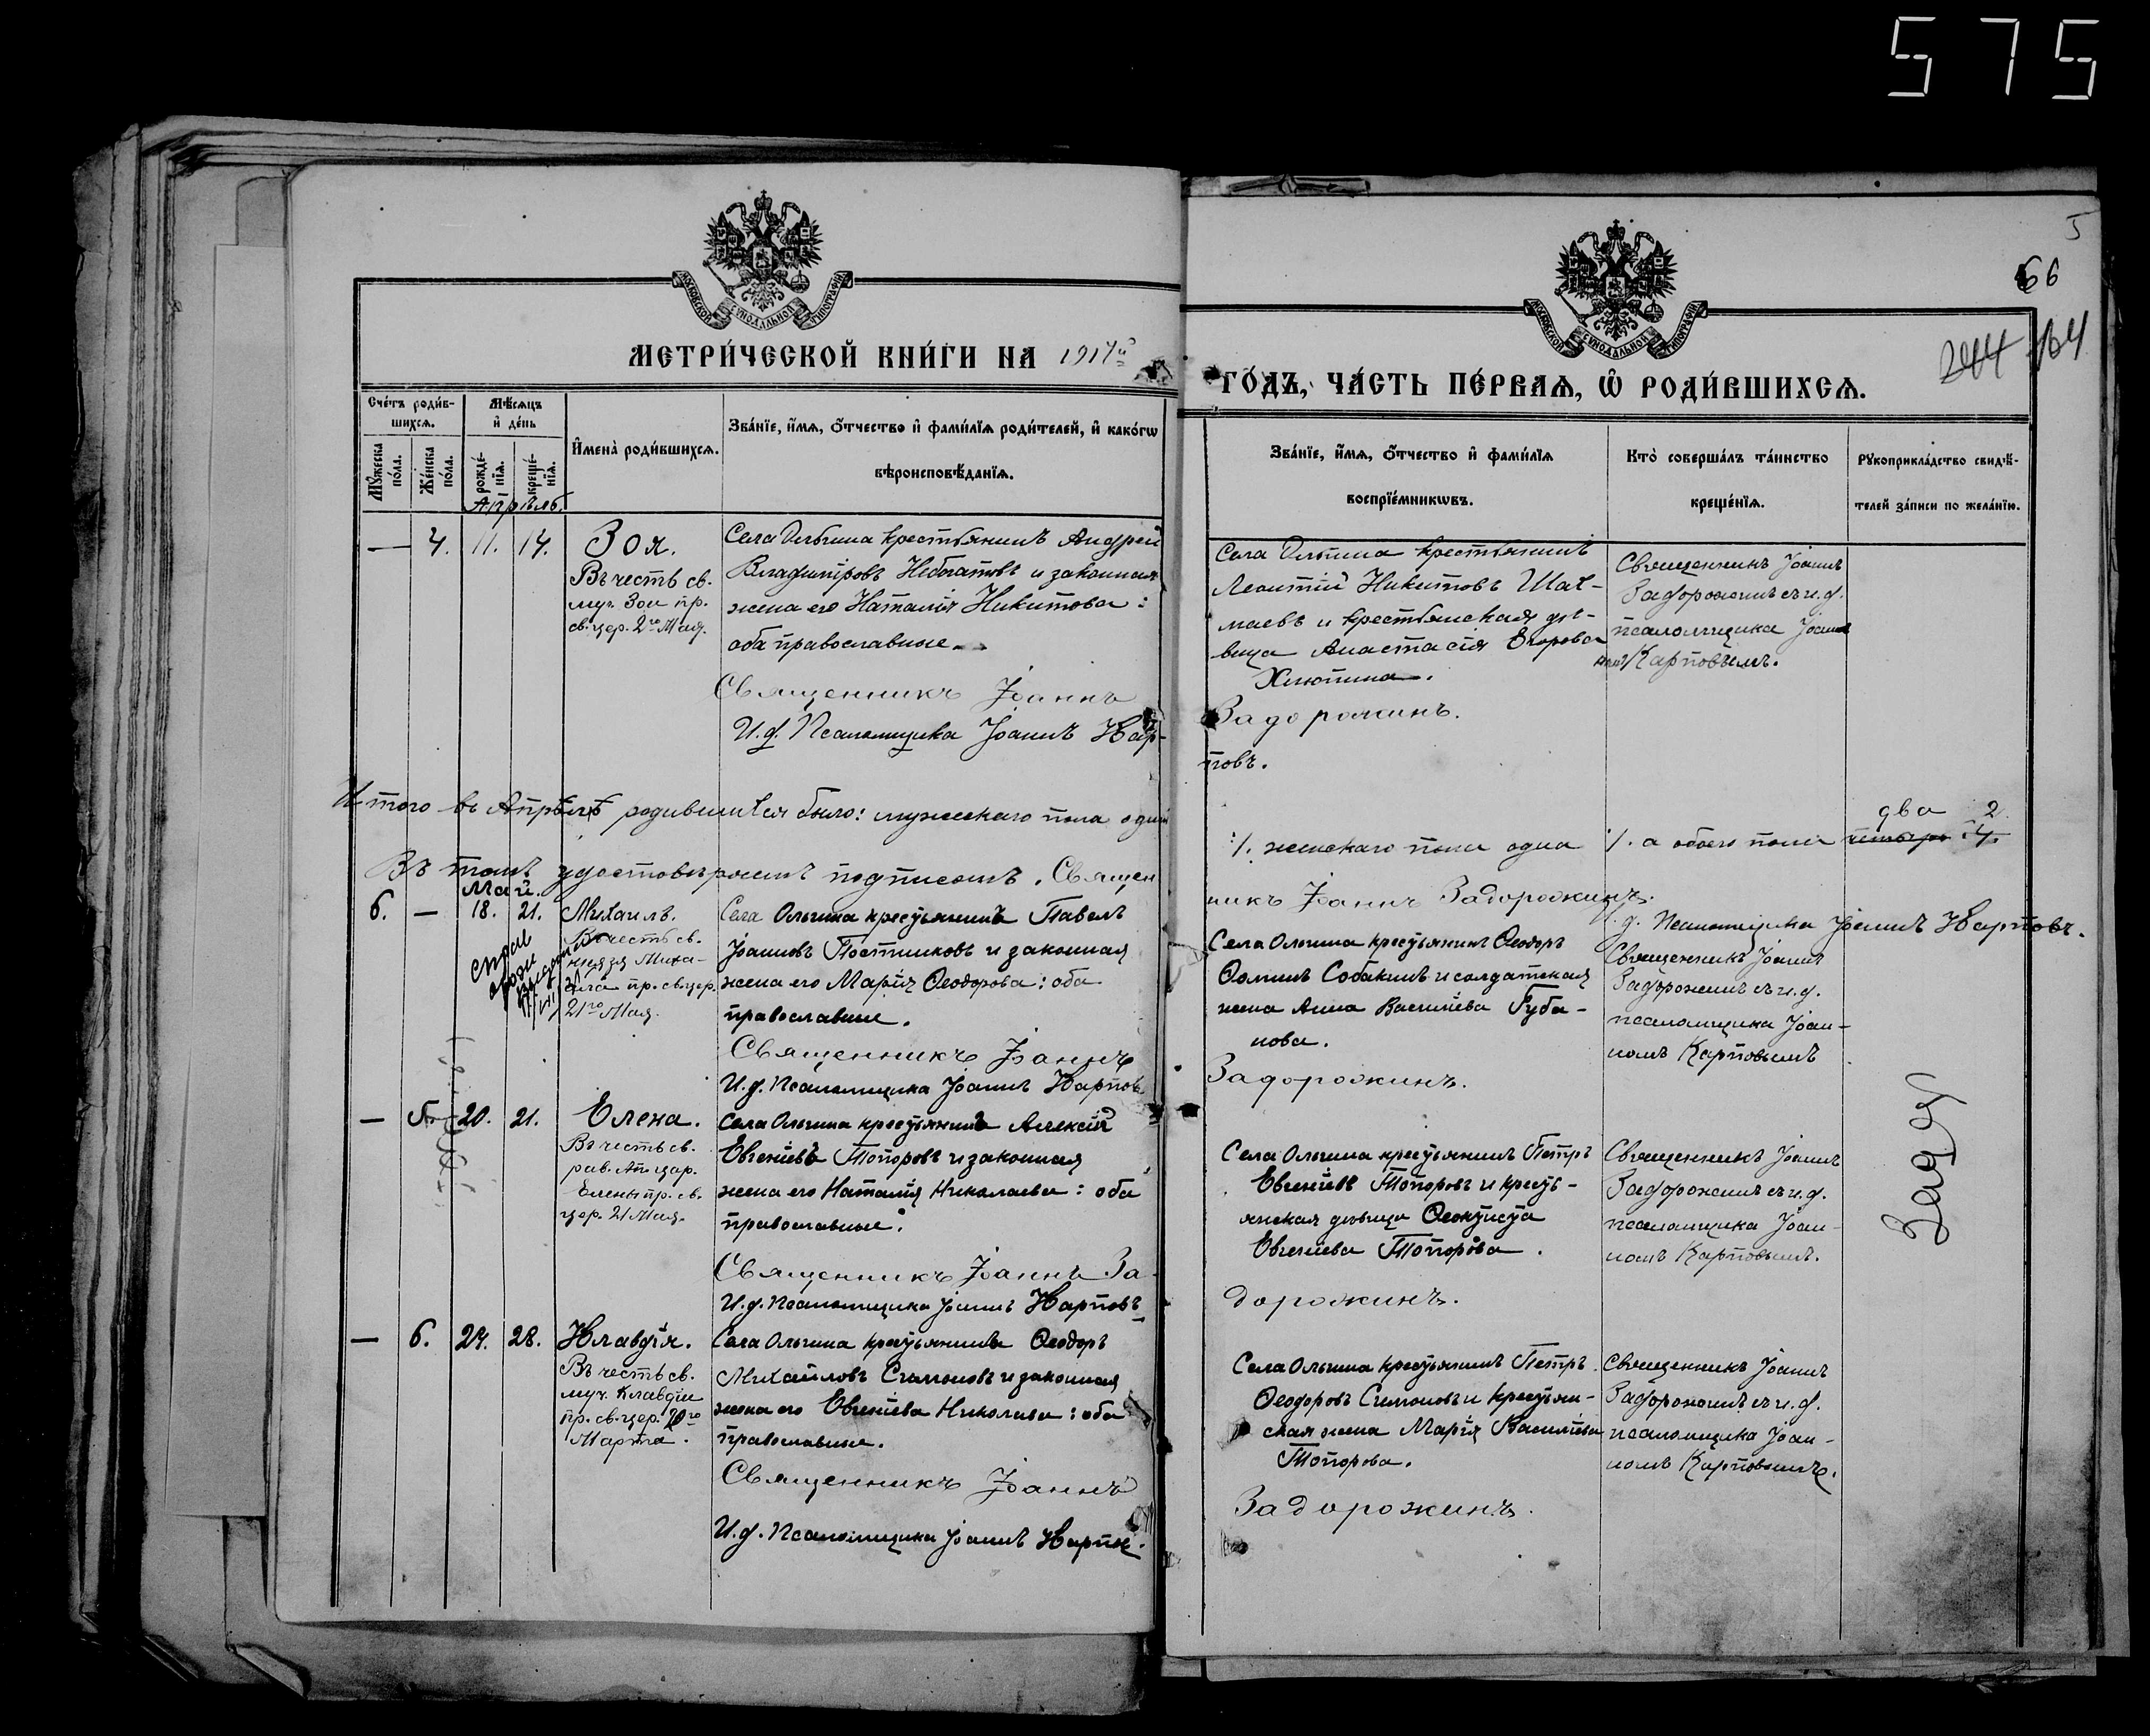 575
5
66
МОСКОВСКОЙ СУНОДАЛЬНОЙ ТИПОГРАФІИ
МОСКОВСКОЙ СУНОДАЛЬНОЙ ТИПОГРАФІИ
МЕТРИ́ЧЕСКОЙ КНИ́ГИ НА 1917й
ГО́ДЪ, ЧА́СТЬ ПЕ́РВАЯ, Ѡ҆ РОДИ́ВШИХСЯ.
244 164
Сче́тъ роди́в-
шихся.
Мꙋ́жеска по́ла.
Же́нска по́ла.
Мѣ́сяцъ
и҆ де́нь
рожде́-
нія.
креще́-
нія.
И҆мена̀ роди́вшихся.
Зва́нїе, и҆́мя, ѻ҆́тчество и҆ фами́лїя роди́телей, и҆ како́гѡ
вѣроисповѣ́данїя.
Зва́нїе, и҆́мя, ѻ҆́тчество и҆ фами́лїя
воспрїе́мникѡвъ.
Кто̀ соверша́лъ та́инство
креще́нїя.
Рꙋкоприкла́дство свидѣ́-
телей за́писи по жела́нїю.
Апрѣль.
— 4. 11. 14. Зоя.
Въ честь св.
муч. Зои пр.
св. цер. 2го Мая.
Села Ольгина крестьянинъ Андрей
Владиміровъ Небогатовъ и законная
жена его Наталія Никитова:
оба православные.
Священникъ Іоаннъ
И.д. Псаломщика Іоаннъ Кар-
Села Ольгина крестьянинъ
Леонтій Никитовъ Шах-
маевъ и крестьянская дѣ-
вица Анастасія Егорова
Хлюпина.
Задорожинъ.
повъ.
Священникъ Іоаннъ
Задорожинъ съ и.д.
псаломщика Іоан
номъ Карповымъ.
Итого въ Апрѣлѣ родившихся было: мужескаго пола одинъ
1. женскаго пола одна 1. а обоего пола четыре 4.
два 2.
Въ томъ удостовѣряемъ подписомъ. Священ
никъ Іоаннъ Задорожинъ.
И.д. Псаломщика Іоаннъ Карповъ.
Май.
6. — 18. 21. Михаилъ.
Въ честь св.
князя Миха-
ила пр. св. цер.
21го Мая.
Села Ольгина крестьянинъ Павелъ
Іоанновъ Постниковъ и законная
жена его Марія Ѳеодорова: оба
православные.
Священникъ Іоаннъ
И.д. Псаломщика Іоаннъ Карповъ
Села Ольгина крестьянинъ Ѳеодоръ
Ѳоминъ Собакинъ и солдатская
жена Анна Василіева Губа-
нова.
Задорожинъ.
Священникъ Іоаннъ
Задорожинъ съ и.д.
псаломщика Іоан-
номъ Карповымъ
— 5. 20. 21. Елена.
Въ честь св.
рав. Ап. цар.
Елены пр. св.
цер. 21 Мая.
Села Ольгина крестьянинъ Алексій
Евгеніевъ Топоровъ и законная
жена его Наталія Николаева: оба
православные.
Священникъ Іоаннъ За
И.д. Псаломщика Іоаннъ Карповъ
Села Ольгина крестьянинъ Петръ
Евгеніевъ Топоровъ и кресть-
янская дѣвица Ѳеоктиста
Евгеніева Топорова.
дорожинъ.
Священникъ Іоаннъ
Задорожинъ съ и.д.
псаломщика Іоан-
номъ Карповымъ.
— 6. 24. 28. Клавдія.
Въ честь св.
муч. Клавдіи
пр. св. цер. 20го
Марта.
Села Ольгина крестьянинъ Ѳеодоръ
Михайловъ Симоновъ и законная
жена его Евгеніева Николаева: оба
православные.
Священникъ Іоаннъ
И.д. Псаломщика Іоаннъ Карпов.
Села Ольгина крестьянинъ Петръ
Ѳеодоровъ Симоновъ и крестьян-
ская жена Марія Василіева
Топорова.
Задорожинъ.
Священникъ Іоаннъ
Задорожинъ съ и.д.
псаломщика Іоан-
номъ Карповымъ.